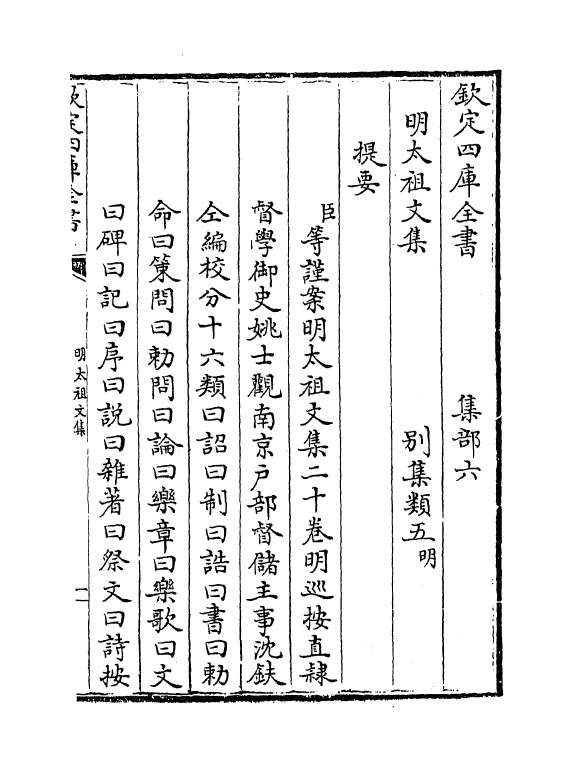 欽定四庫全書　集部六
明太祖文集　別集類五明
提要
臣等謹案明太祖文集二十卷明巡按直隸
督學御史姚士觀南京戶部督儲主事沈鈇
仝編校分十六類曰詔曰制曰誥曰書曰勅
命曰策問曰勅問曰論曰樂章曰樂歌曰文
曰碑曰記曰序曰說曰雜著曰祭文曰詩按
欽定四庫全書　明太祖文集　一